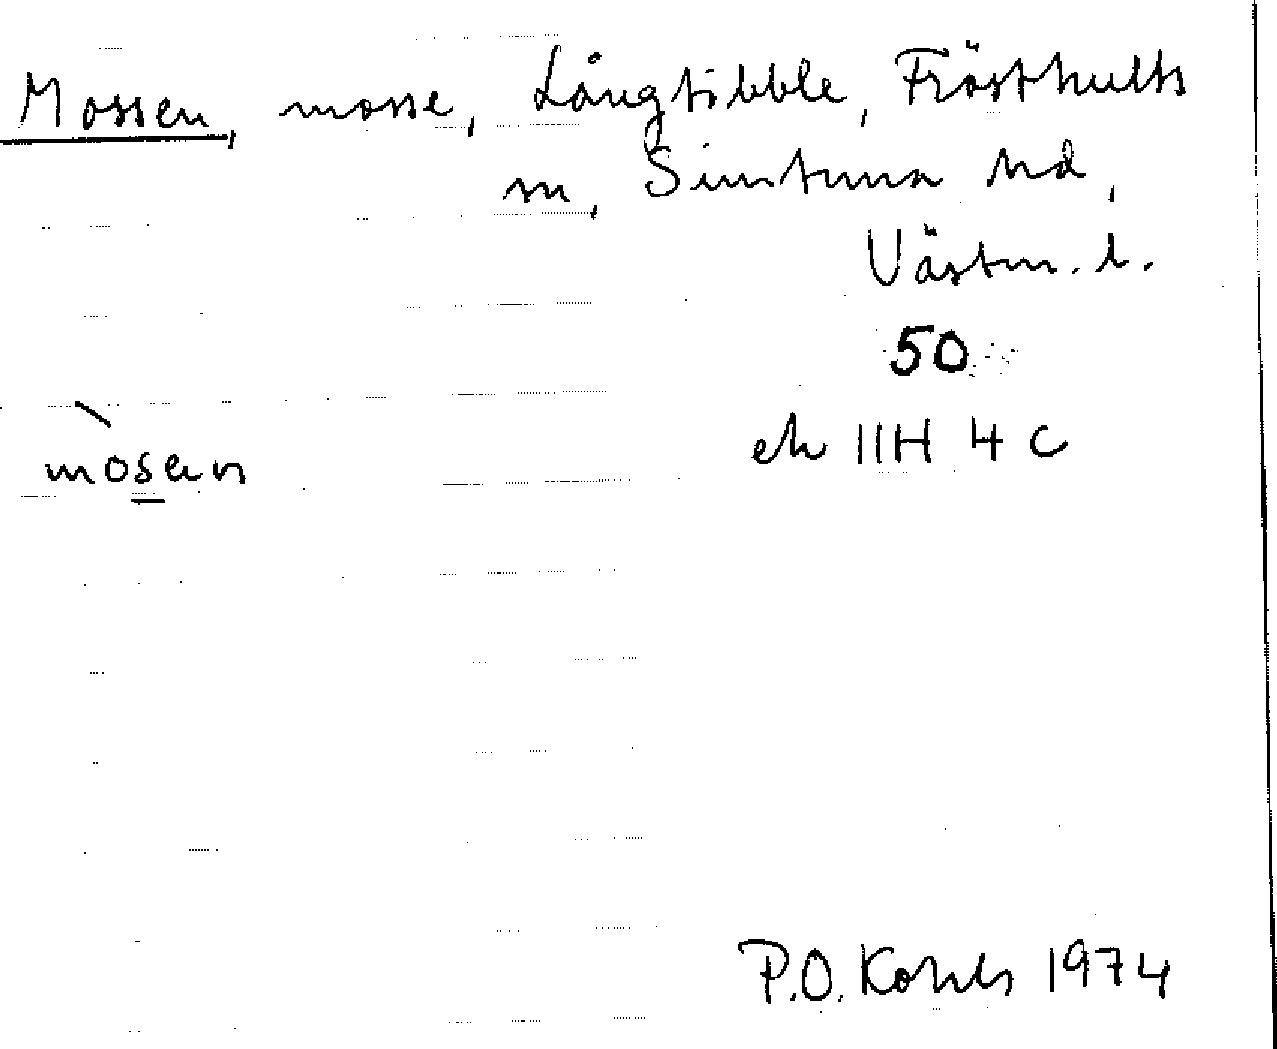 Mossen, mosse, Långtibble, Frösthults
sn, Simtuna hd,
Västm. l.
50
ek 11H 4 C
mòsen
P.O. Kohls 1974